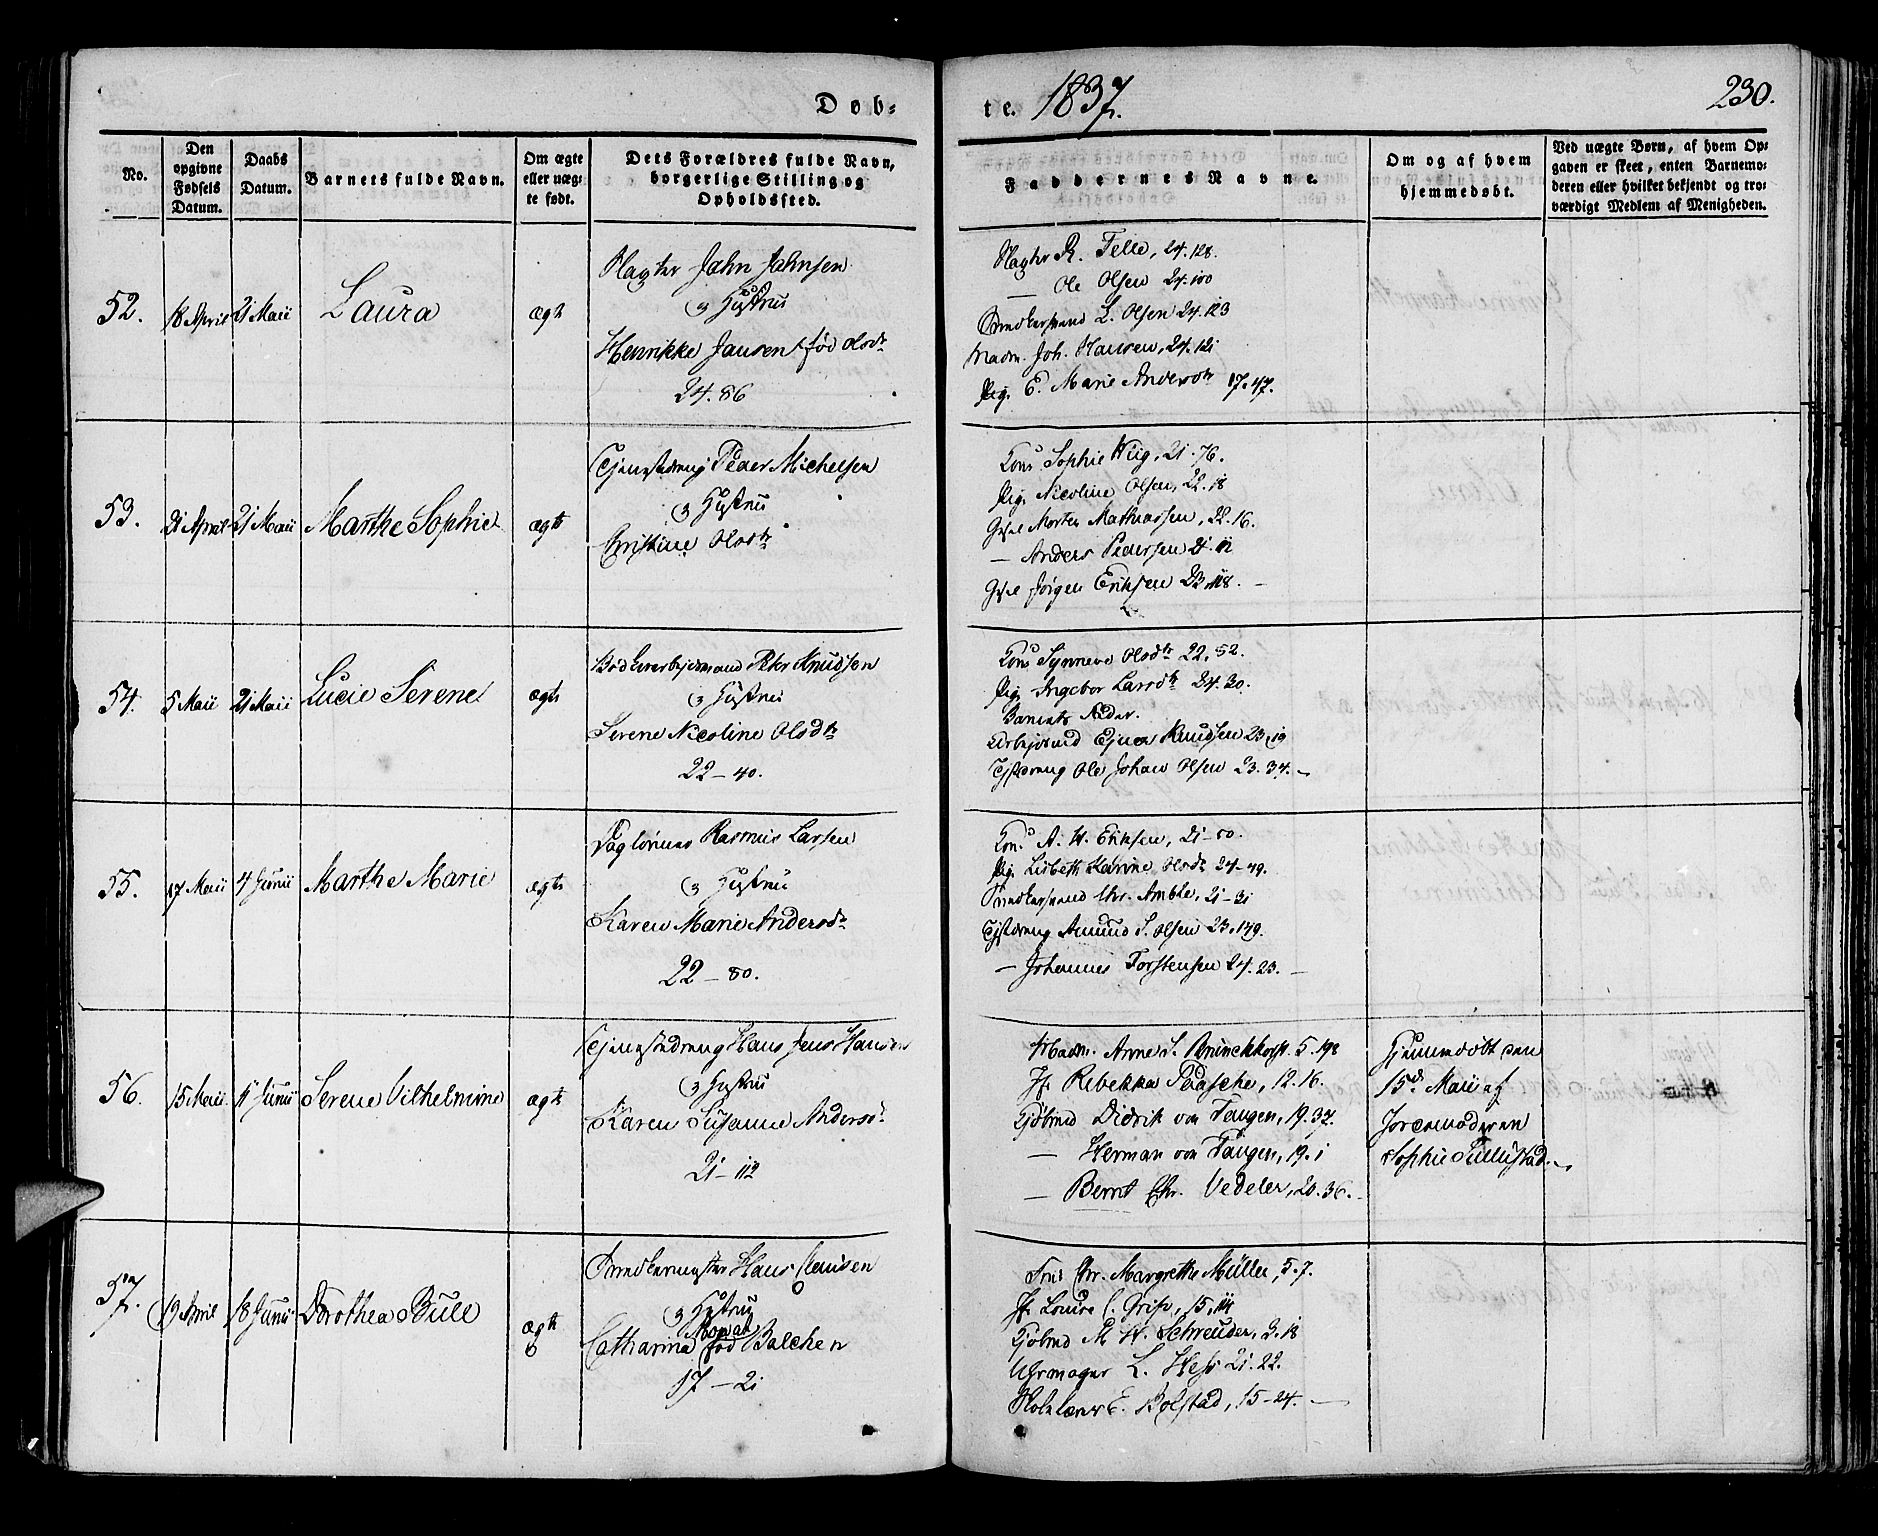 Døb-
te. 1837.
230.
No.
Den opgivne Fødsels Datum.
Daabs Datum.
Barnets fulde Navn.
Om ægte eller uægte født.
Dets Forældres fulde Navn, borgerlige Stilling og Opholdssted.
Faddernes Navne.
Om og af hvem hjemmedøbt.
Ved uægte Børn, af hvem Opgaven er skeet, enten Barnemoderen eller hvilket bekjendt og troværdigt Medlem af Menigheden.
52.
18 April
21 Maii
Laura
ægte
Slagter Jahn Jahnsen
Hustrue
Henrikke Jansen fød Olsdr
24. 86
Slagter R. Telle, 24. 128.
— Ole Olsen 24. 100
Snedkersvend L. Olsen 24. 123
Madm. Joh. Hansen, 24. 121
Pig. E. Marie Andersdr 17. 47.
53.
21 April
21 Maii
Marthe Sophie
ægte
Tjenestedreng Peder Michelsen
Hustrue
Christine Olsdr
Kone Sophie Wiig, 21. 76.
Pig. Nicoline Olsen, 22. 18
Morten Mathiassen, 22. 16.
— Anders Pedersen 21. 12
Jörgen Eriksen 23. 118. —
54.
5 Maii
21 Maii
Lucie Serene
ægte
Peter Knudsen
Hustrue
Serene Nicoline Olsdr
22 — 40.
Kone Synneve Olsdr 22. 52.
Pig. Ingebor Larsdr 24. 30.
Barnets Fader.
Knudsen 23. 19
Ole Johan Olsen 23. 34. —
55.
17 Maii
4 Junii
Marthe Marie
ægte
Daglönner Rasmus Larsen
Hustrue
Karen Marie Andersdr
22 — 80.
Kone A. H. Eriksen, 21 — 80.
Pig. Lisbeth Karine Olsdr 24 — 49.
Snedkersvend Chr. Amble, 21 — 31
Amund S. Olsen 23. 149.
— Johannes Torstensen 24. 23. —
56.
15 Maii
11 Junii
Serene Vilhelmine
ægte
Tjenestedreng Hans Jens Hansen
Hustrue
Karen Susanne Andersdr
21 — 112
Madm. Anne S. Brinchhorst. 5. 198
Jf. Rebekka Paasche, 12. 16.
Kjöbmd Didrik von Tangen, 19. 37.
— Herman von Tangen, 19. 1
— Bernt Chr. Vedeler, 20. 36. —
Hjemmedöbt den
15de Maii af
Jordemoderen
Sophie
57.
19 April
18 Junii
Dorothea Bull
ægte
Snedkermester Hans Clausen
Hustrue
Catharina fød Balchen
17 — 21
Frue Chr. Margrethe Müller, 5. 7.
Jf. Louise C. Griis, 15. 111
Kjöbmd M. H. Schreuder, 3. 18
Uhrmager L. Hess 21. 22.
E. Bolstad, 15 — 24. —